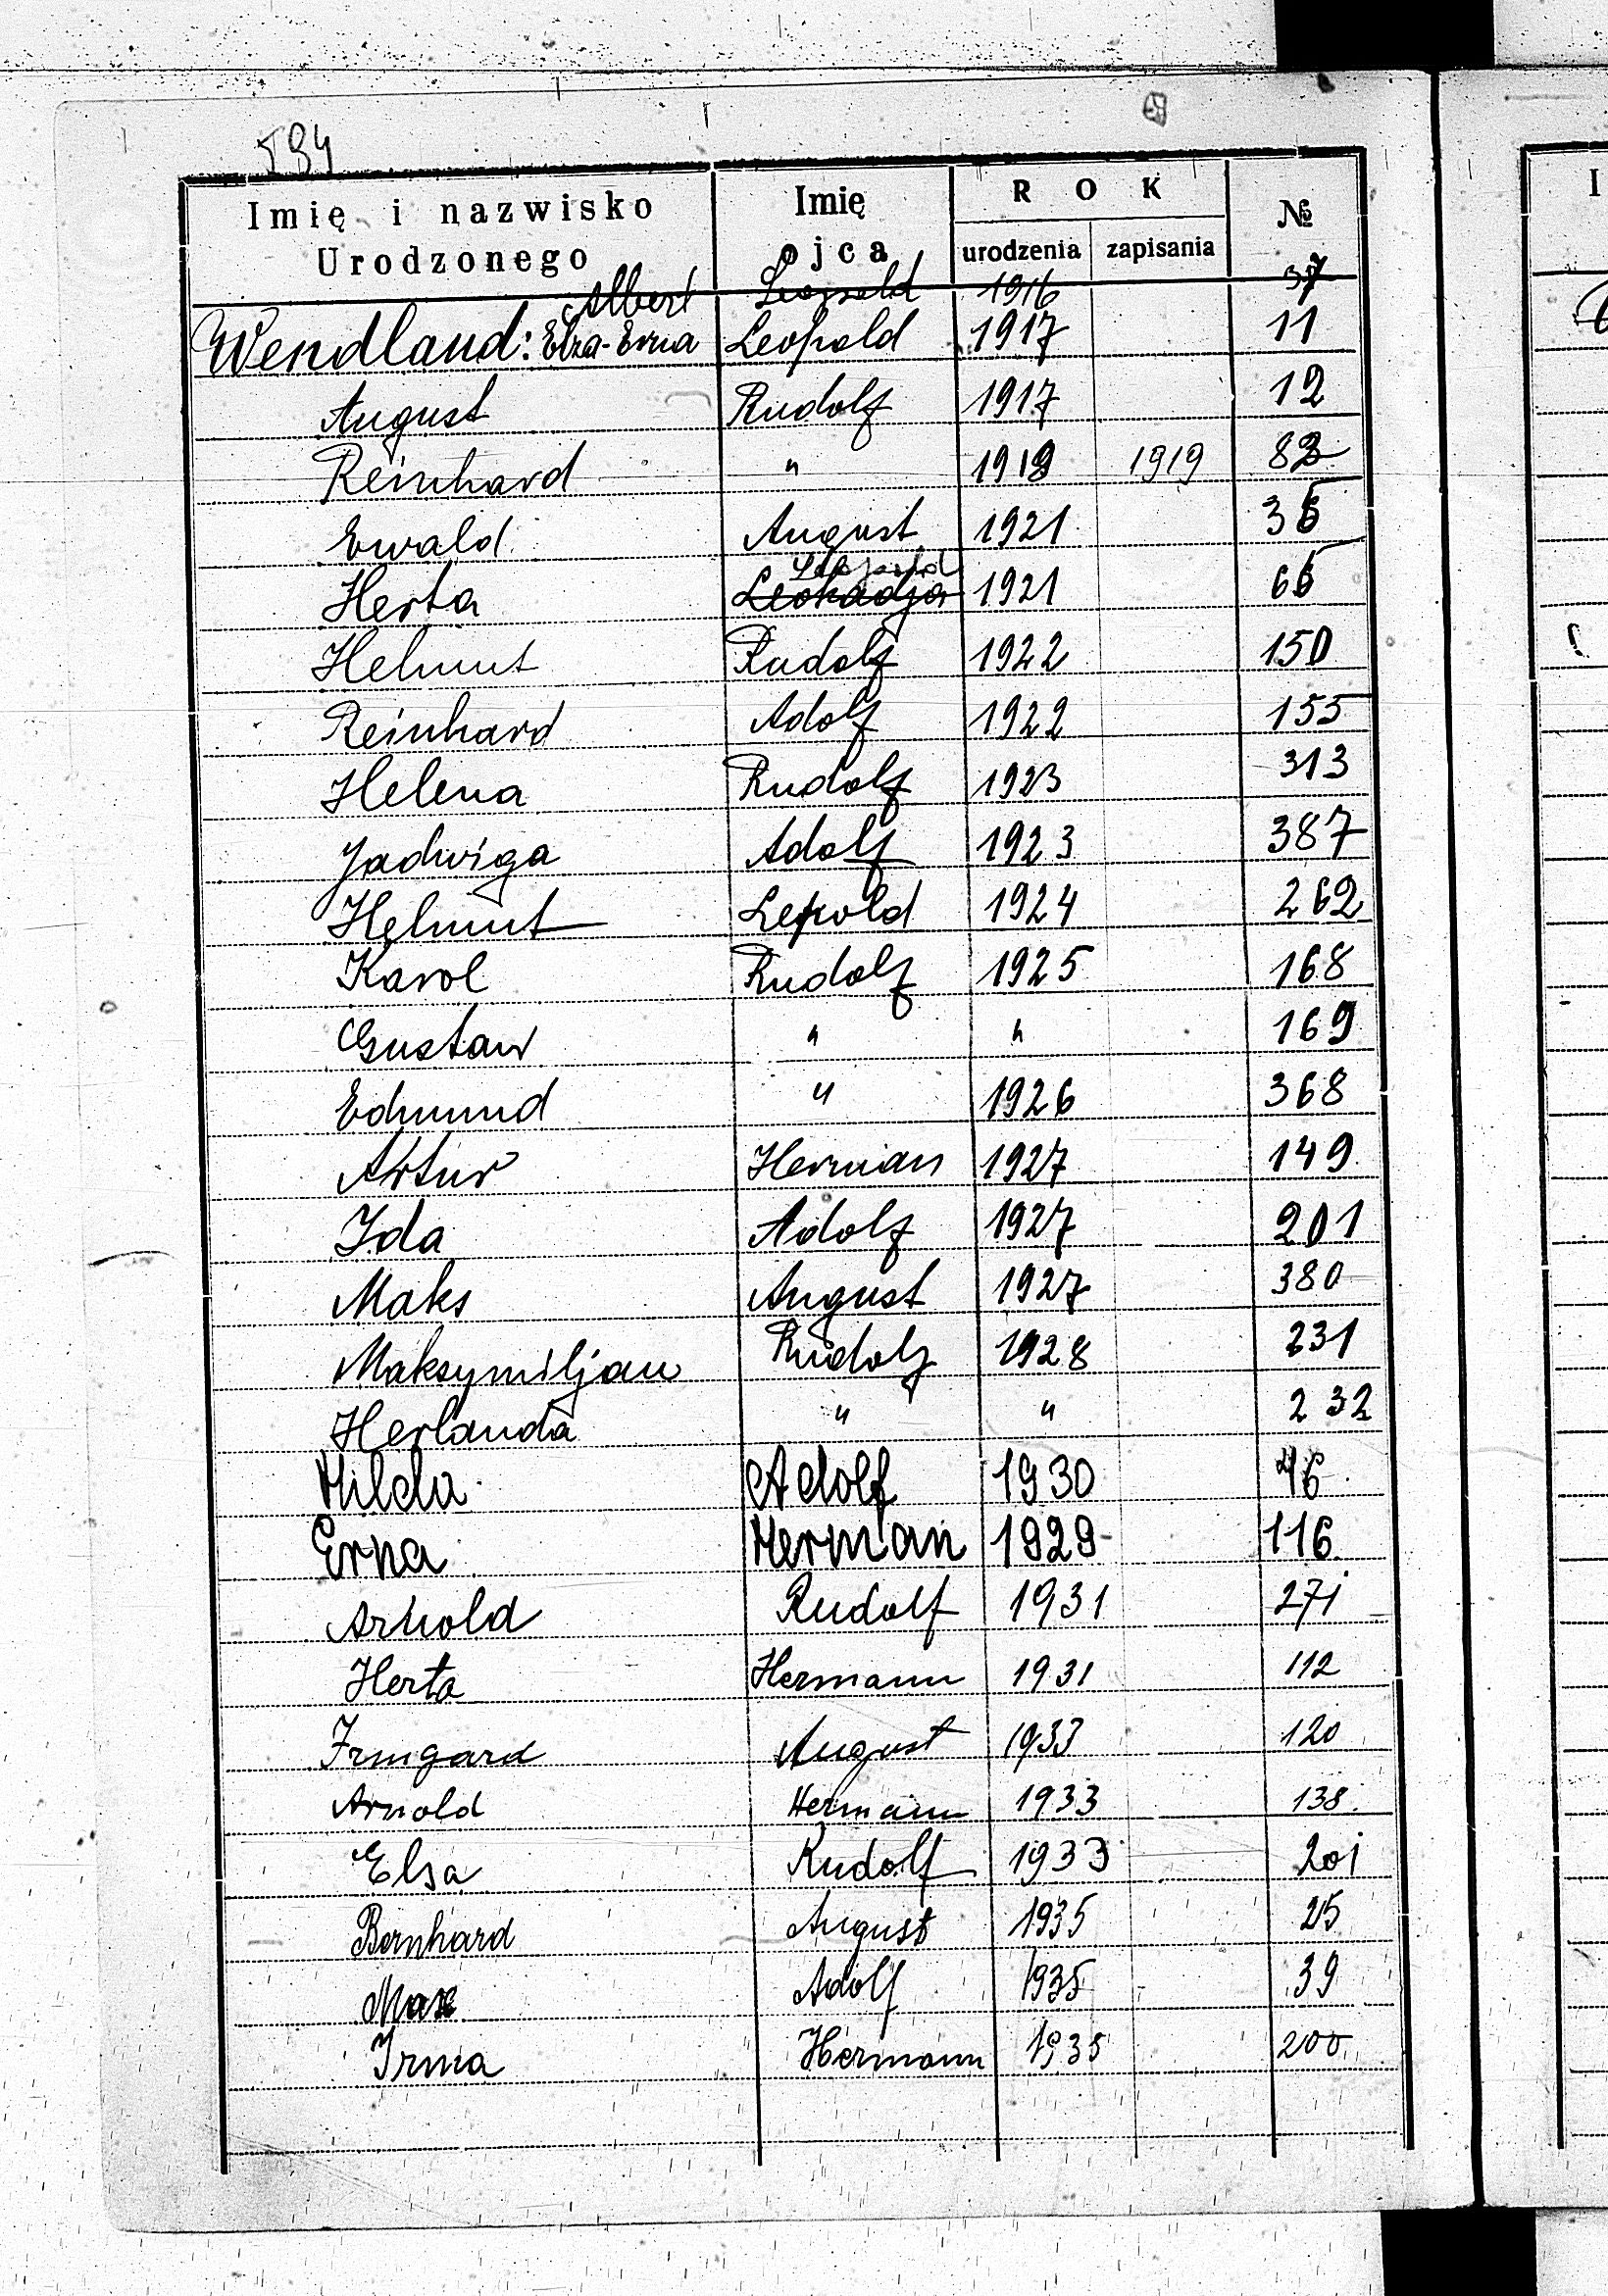 594
Imię i nazwisko Urodzonego Imię ojca ROK urodzenia zapisania №
Albert Leopold 1916 37
Wendland: Elza-Erna Leopold 1917 11
August Rudolf 1917 12
Reinhard " 1919 1919 83
Ewald August 1921 35
Herta Leokadja Leopold 1921 65
Helmut Rudolf 1922 150
Reinhard Adolf 1922 155
Helena Rudolf 1923 313
Jadwiga Adolf 1923 387
Helmut Lepold 1924 262
Karol Rudolf 1925 168
Gustaw " " 169
Edmund " 1926 368
Artur Herman 1927 149
Ida Adolf 1927 201
Maks August 1927 380
Maksymiljan Rudolf 1928 231
Herlanda " " 232
Hilda Adolf 1930 46
Erna Herman 1929 116
Arnold Rudolf 1931 271
Herta Hermann 1931 112
Irmgard August 1933 120
Arnold Hermann 1933 138
Elsa Rudolf 1933 201
Bernhard August 1935 25
Max Adolf 1935 39
Irma Hermann 1935 200
I